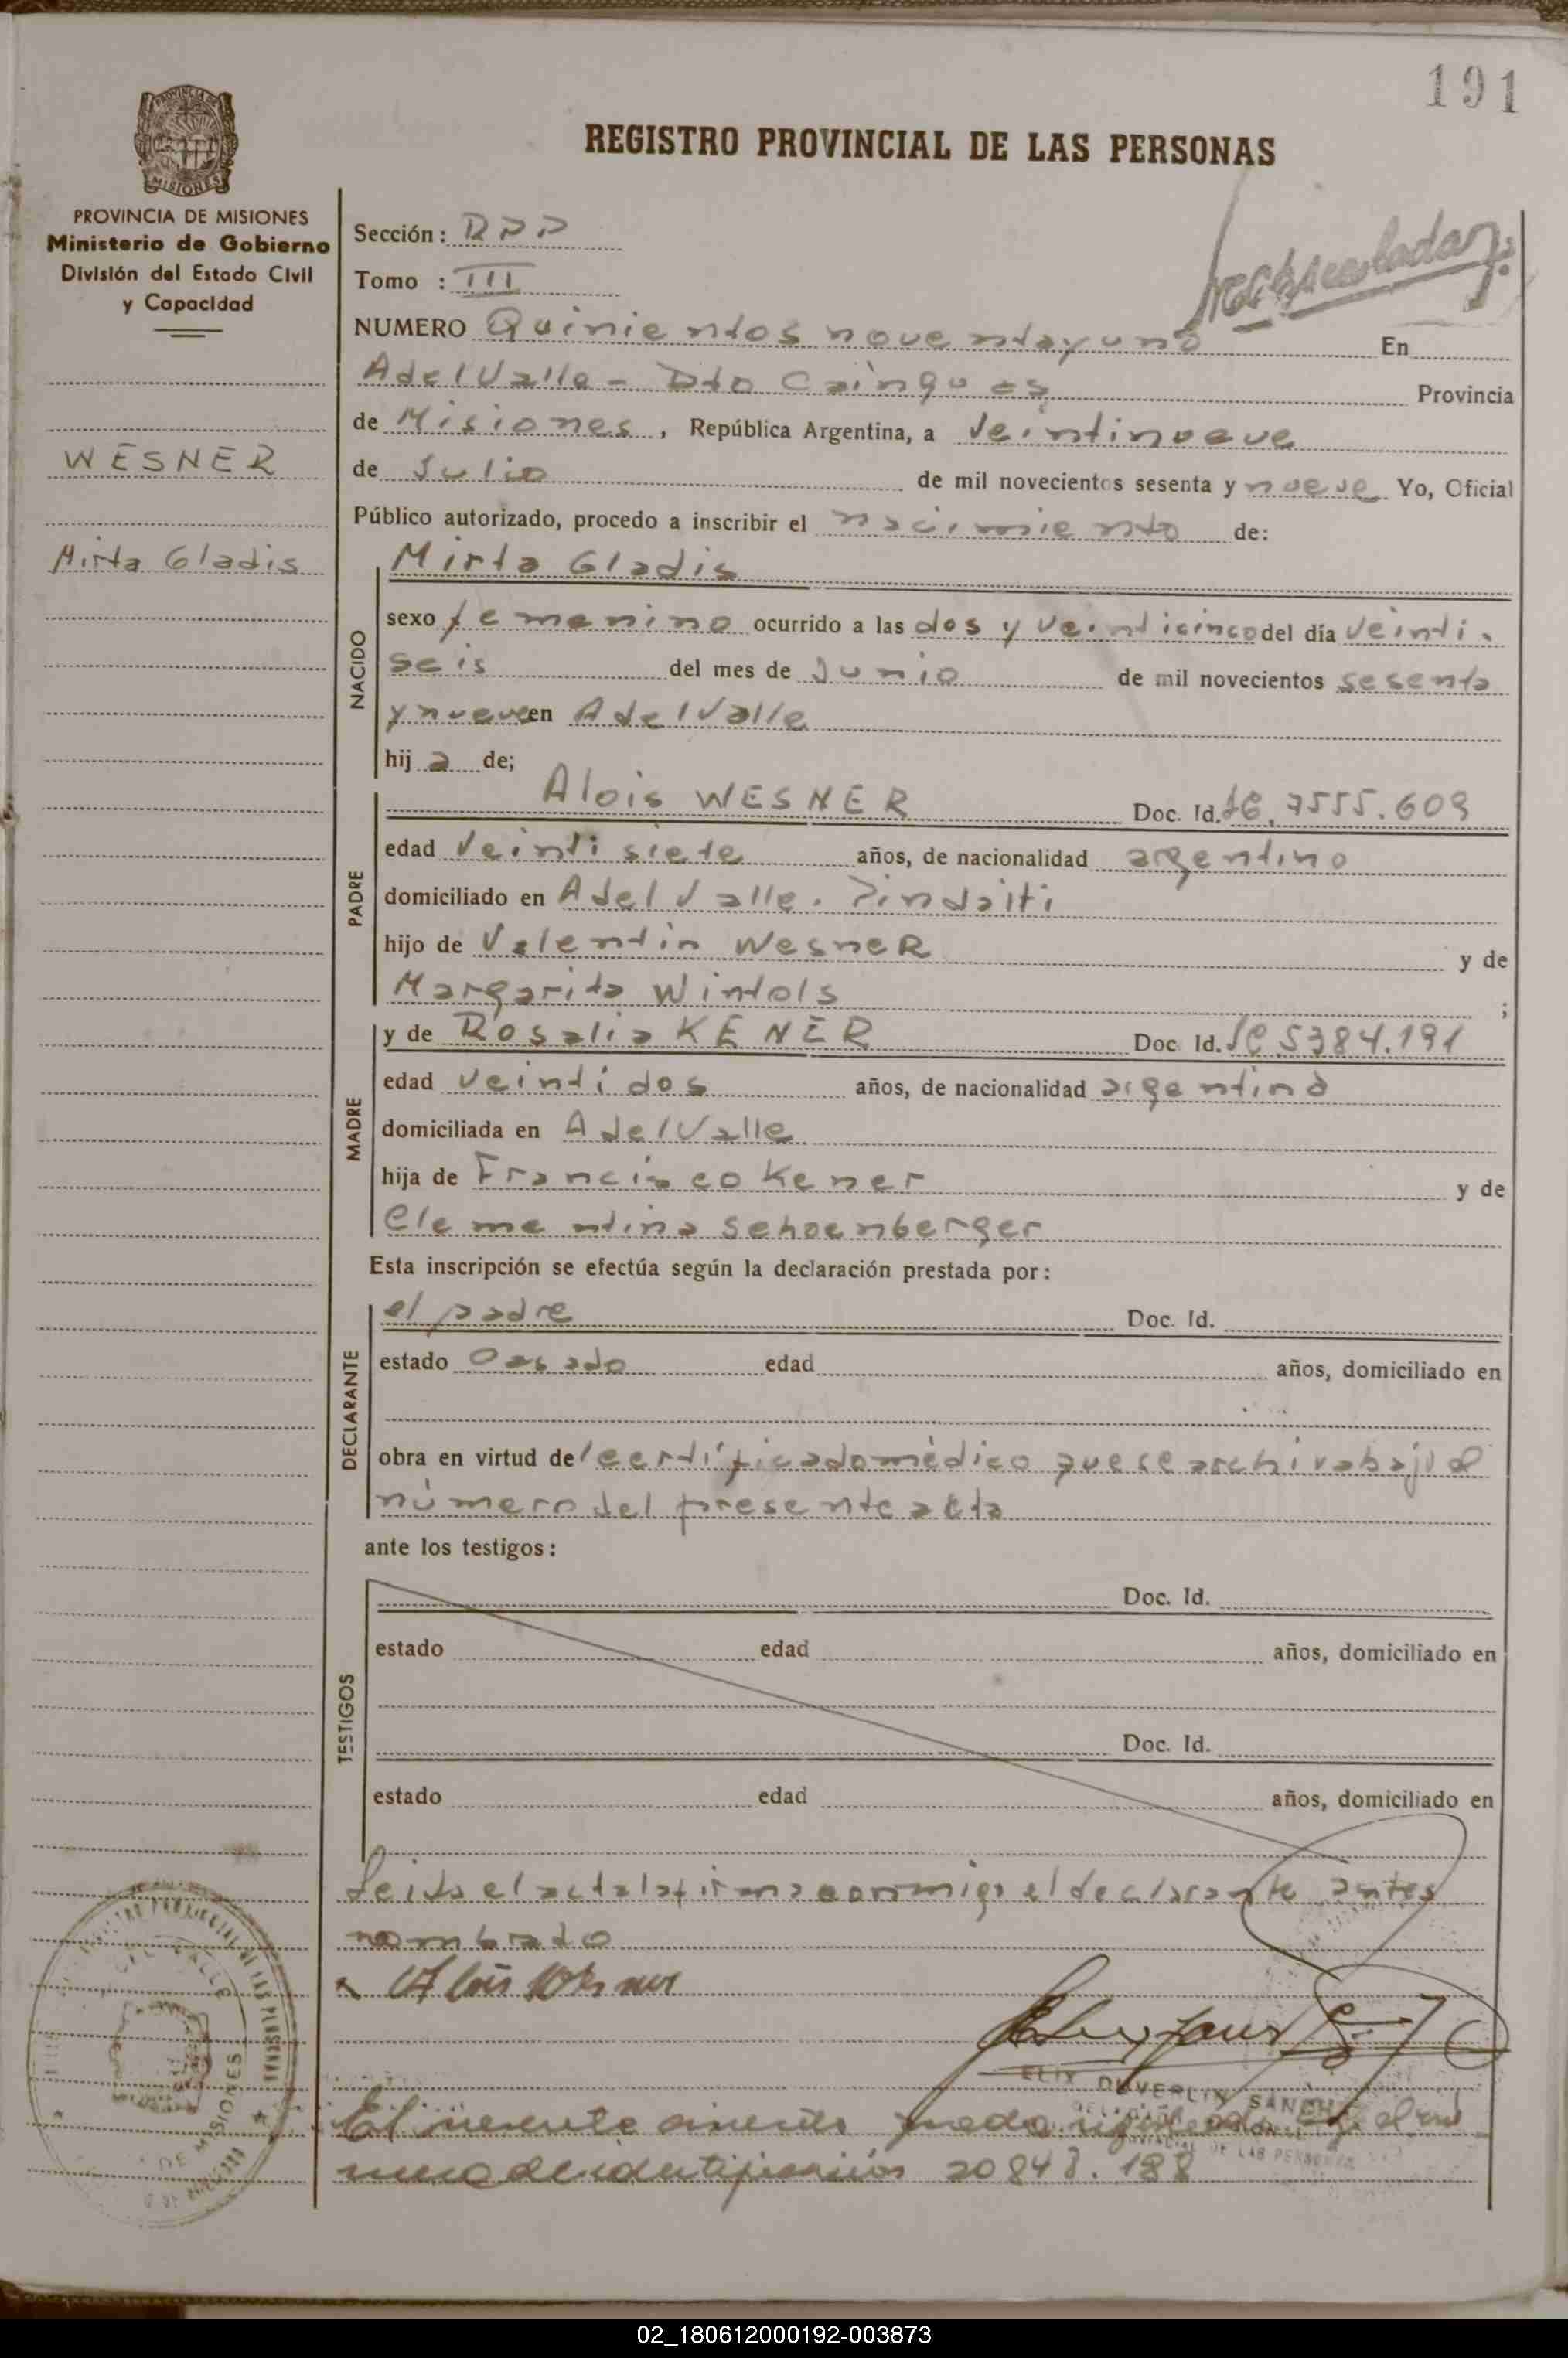 191
REGISTRO PROVINCIAL DE LAS PERSONAS
PROVINCIA DE MISIONES
Ministerio de Gobierno
División del Estado Civil
y Capacidad
WESNER
Mirta Gladis
Sección: RPP
Tomo : III
NUMERO Quinientos noventa y uno En
A del Valle - Dto Cainguas Provincia
de Misiones, República Argentina, a veintinueve
de Julio de mil novecientos sesenta y nueve Yo, Oficial
Público autorizado, procedo a inscribir el nacimiento de:
NACIDO
Mirta Gladis
sexo femenino ocurrido a las dos y veinticinco del día veinti-
seis del mes de Junio de mil novecientos sesenta
y nueve en A del Valle
hij a de;
PADRE
Alois WESNER Doc. Id. 7555.609
edad veintisiete años, de nacionalidad argentino
domiciliado en A del Valle. Pindaiti
hijo de Valentin Wesner y de
Margarita Wintols ;
MADRE
y de Rosalia KENER Doc. Id. 5384.191
edad veintidos años, de nacionalidad argentina
domiciliada en A del Valle
hija de Francisco Kener y de
Clementina Schoenberger
Esta inscripción se efectúa según la declaración prestada por:
DECLARANTE
el padre Doc. Id.
estado Casado edad años, domiciliado en
obra en virtud del certificado médico que se archiva bajo el
número del presente acta
ante los testigos:
TESTIGOS
Doc. Id.
estado edad años, domiciliado en
Doc. Id.
estado edad años, domiciliado en
Leida el acta la firma conmigo el declarante antes
nombrado
Alois Wesner
El presente
de identificación 20843.198
02_180612000192-003873